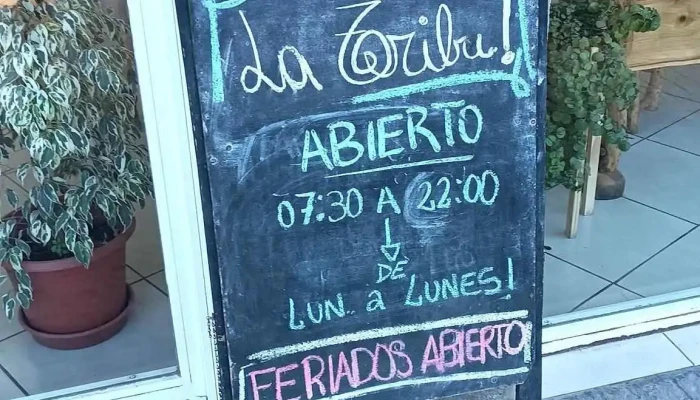 La Tribu!
ABIERTO
07:30 A 22:00
DE
LUN. a LUNES!
FERIADOS ABIERTO